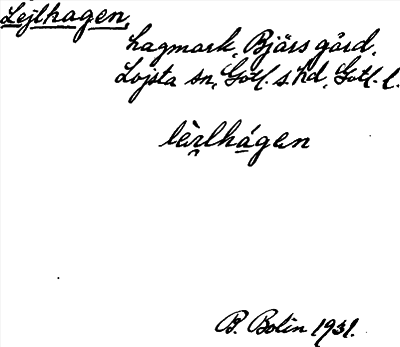 Lejlhagen,
hagmark, Bjärs gård,
Lojsta sn, Gotl. s. hd, Gotl. l.
lèrlhágen
B. Bolin 1931.